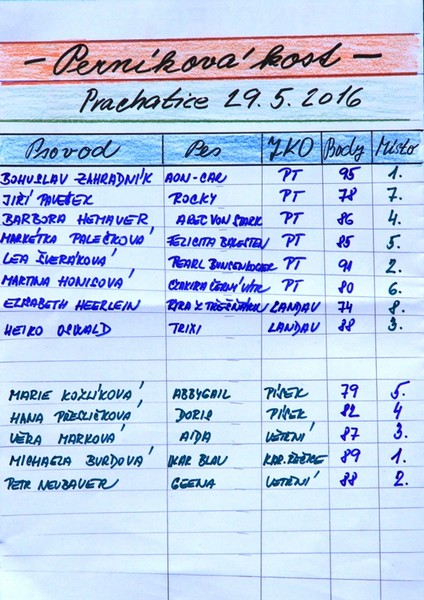 - Perníková kost -
Prachatice 29.5.2016
Psovod Pes ZKO Body Místo
BOHUSLAV ZAHRADNÍK AON-CAR PT 95 1.
JIŘÍ PAVEŠEK ROCKY PT 78 7.
BARBORA HEMAUER AREC VON STARK PT 86 4.
MARKÉTKA PALEČKOVÁ FELICITA PT 85 5.
LEA ŠVERÁKOVÁ PEARL PT 91 2.
MARTINA HONISOVÁ ČERNÝ VÍTR PT 80 6.
ELISABETH HEERLEIN LANDAU 74 8.
HEIKO OSWALD TRIXI LANDAU 88 3.
MARIE KOZLÍKOVÁ ABBYGAIL PÍSEK 79 5.
HANA PŘESLIČKOVÁ DORIS PÍSEK 82 4
VĚRA MARKOVÁ AIDA VČTENÍ 87 3.
MICHAELA BURDOVÁ IKAR BLAU KAR.ŘEČICE 89 1.
PETR NEUBAUER GEENA VČTENÍ 88 2.